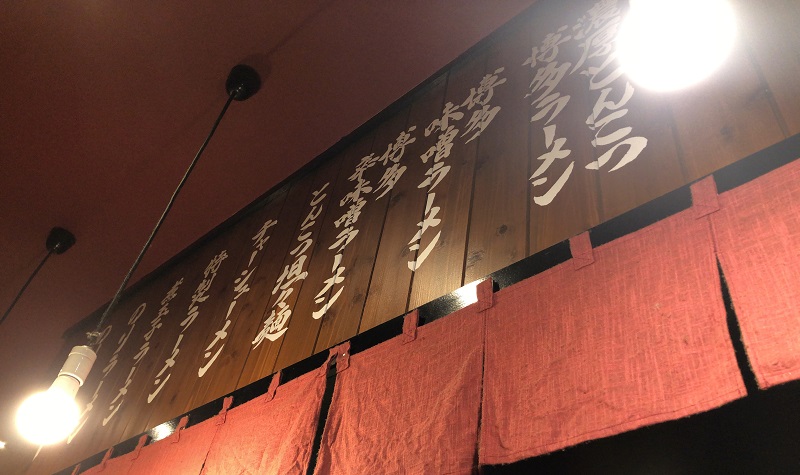 濃厚とんこつ
博多ラーメン
博多
味噌ラーメン
博多
辛味噌ラーメン
とんこつ坦々麺
チャーシューメン
特製ラーメン
ラーメン
のりラーメン